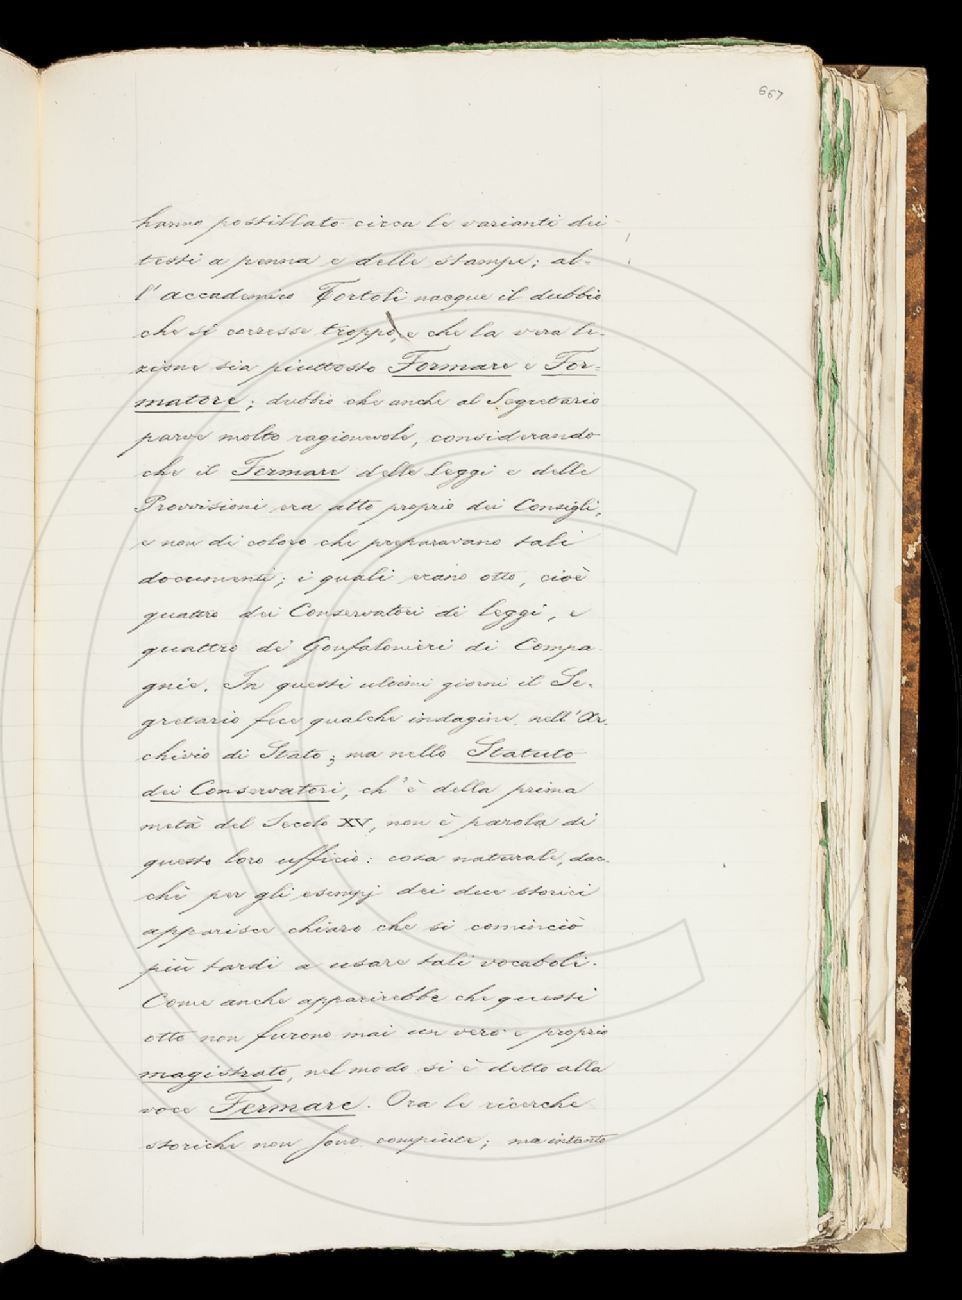 667
hanno postillato circa le varianti dei
testi a penna e delle stampe; al-
l'accademico Tortoli nacque il dubbio
che si corresse troppo, e che la vera le-
zione sia piuttosto Formare e For-
matore; dubbio che anche al Segretario
parve molto ragionevole, considerando
che il Fermare delle leggi e delle
Provvisioni era atto proprio dei Consigli,
e non di coloro che preparavano tali
documenti; i quali erano otto, cioè
quattro dei Conservatori di leggi, e
quattro di Gonfalonieri di Compa-
gnie. In questi ultimi giorni il Se-
gretario fece qualche indagine nell'Ar-
chivio di Stato; ma nello Statuto
dei Conservatori, ch'è della prima
metà del Secolo XV, non è parola di
questo loro ufficio: cosa naturale, dac-
chè per gli esempj dei due storici
apparisce chiaro che si cominciò
più tardi a usare tali vocaboli.
Come anche apparirebbe che questi
otto non furono mai un vero e proprio
magistrato, nel modo si è detto alla
voce Fermare. Ora le ricerche
storiche non sono compiute; ma intanto